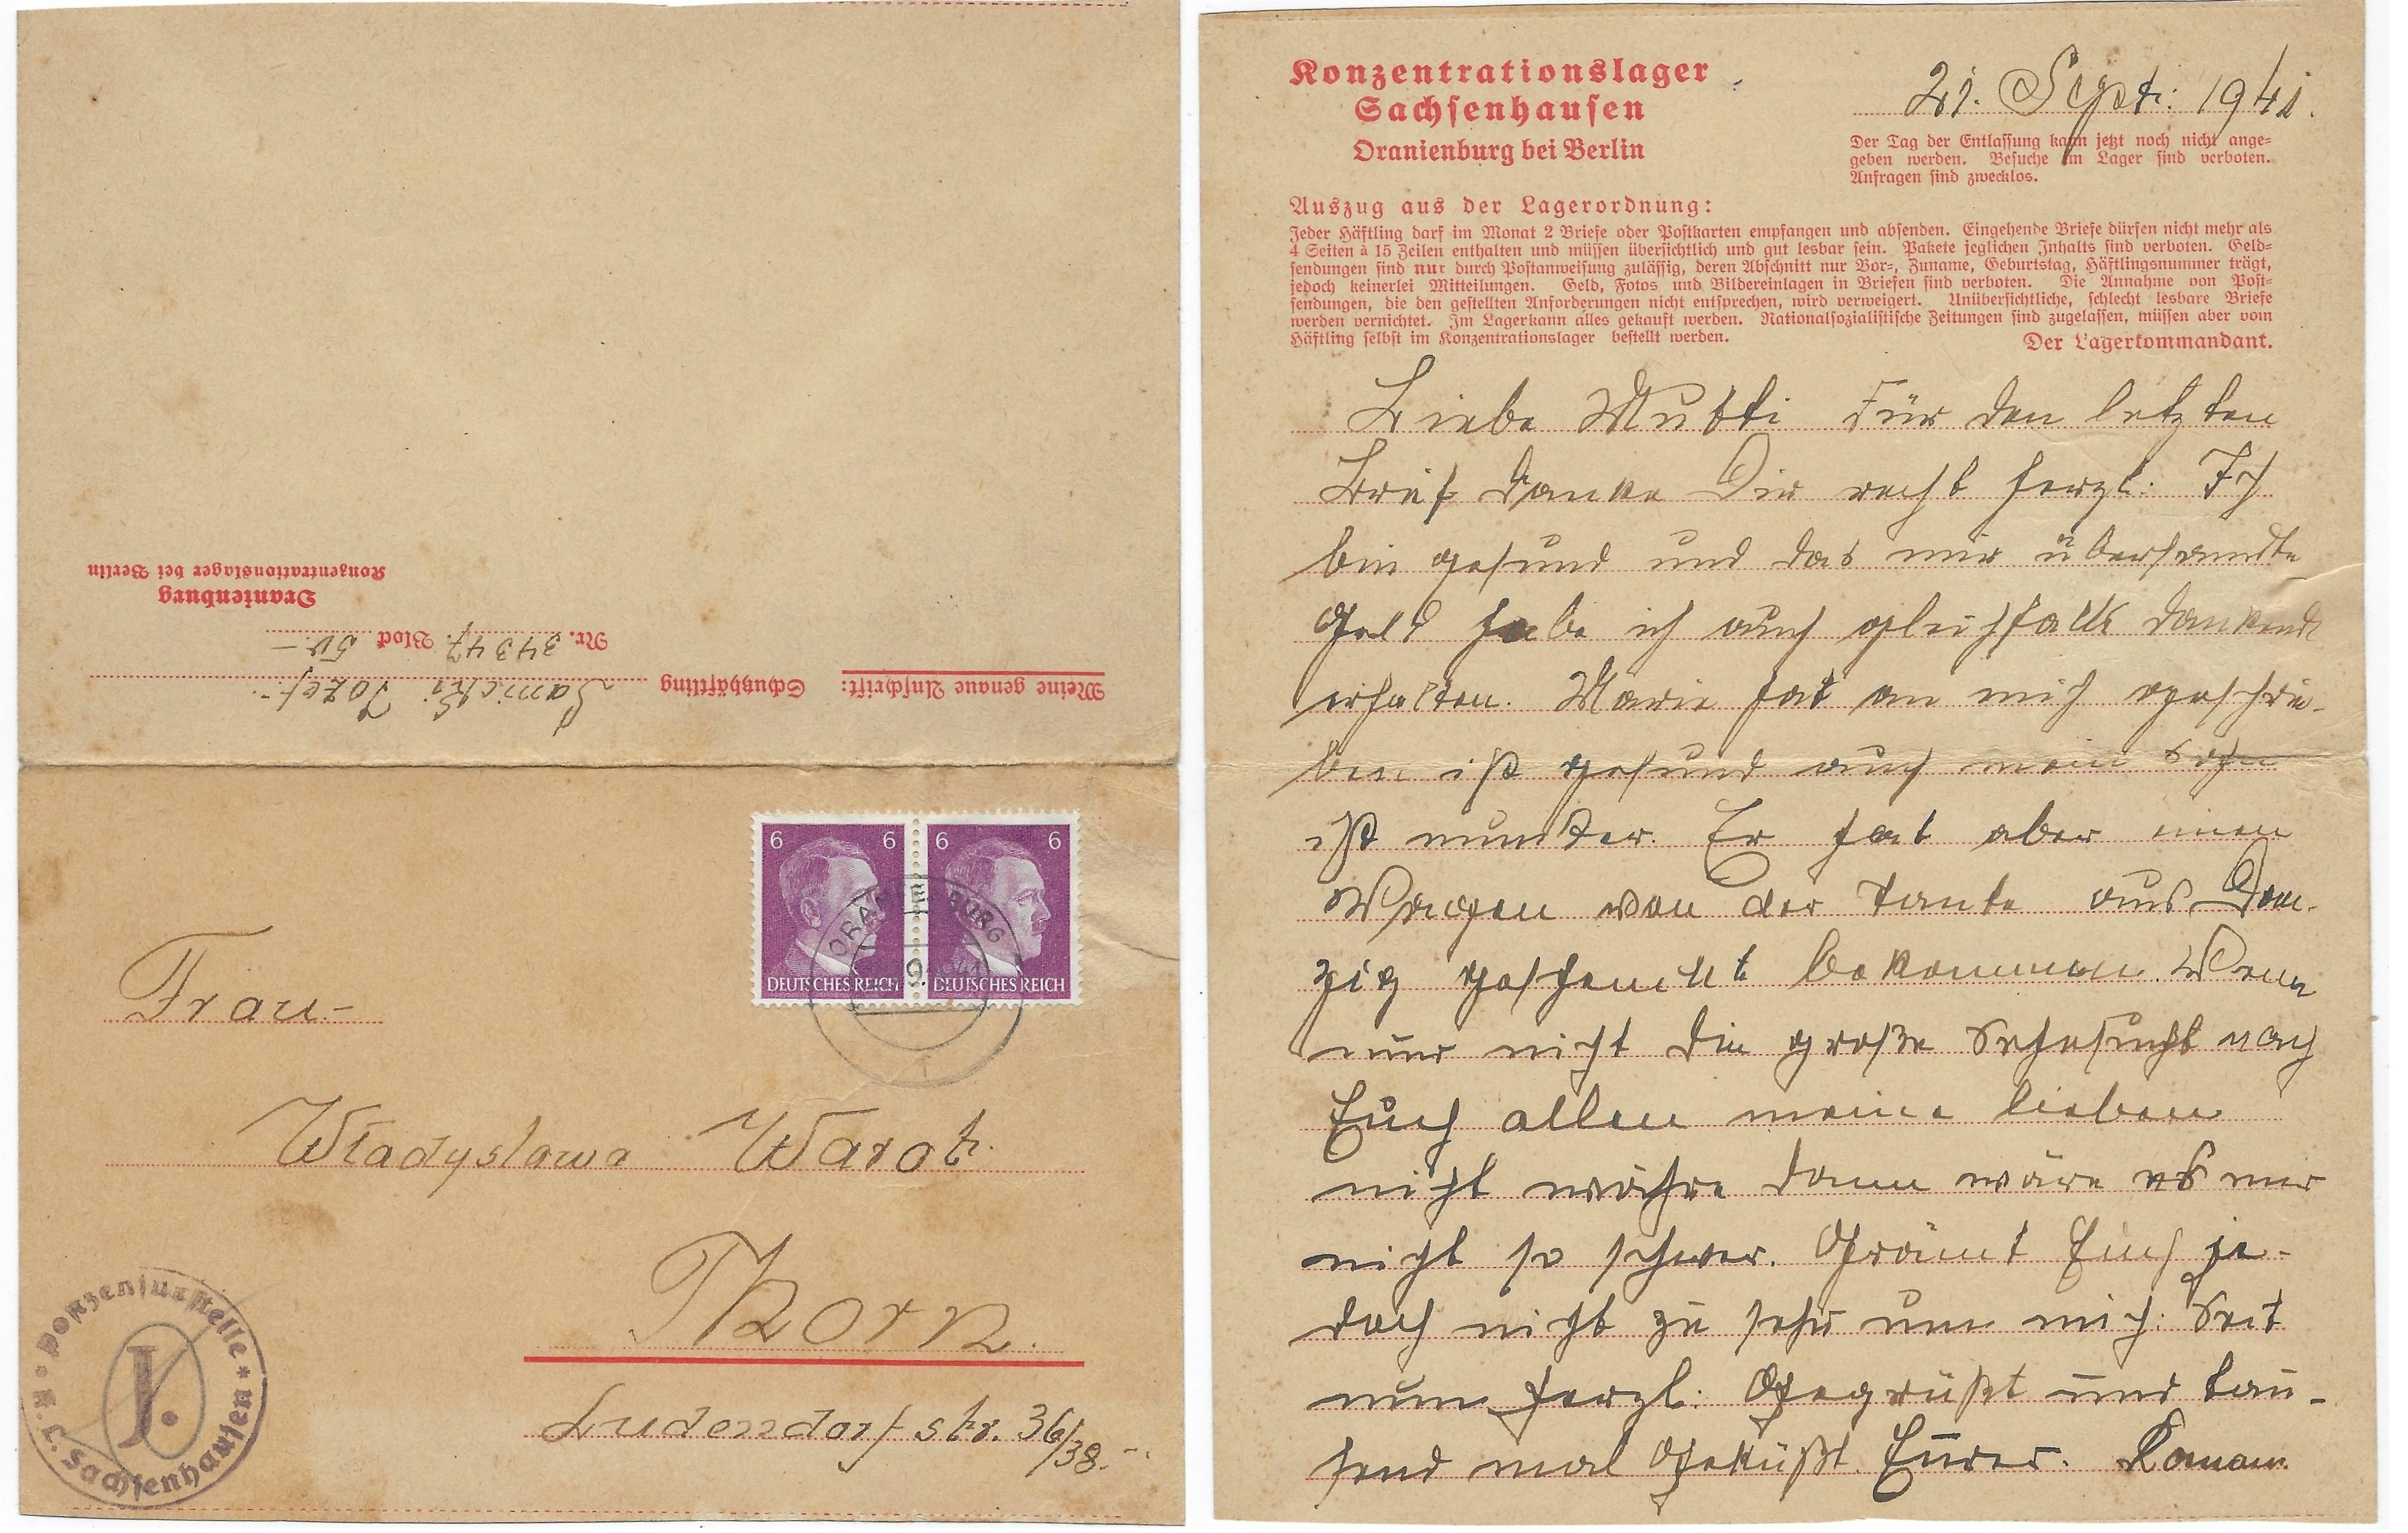 Konzentrationslager
Sachsenhausen
Oranienburg bei Berlin
21. Sept. 1941.
Der Tag der Entlassung kann jetzt noch nicht ange=
geben werden. Besuche im Lager sind verboten.
Anfragen sind zwecklos.
Auszug aus der Lagerordnung:
Jeder Häftling darf im Monat 2 Briefe oder Postkarten empfangen und absenden. Eingehende Briefe dürfen nicht mehr als
4 Seiten à 15 Zeilen enthalten und müssen übersichtlich und gut lesbar sein. Pakete jeglichen Inhalts sind verboten. Geld=
sendungen sind nur durch Postanweisung zulässig, deren Abschnitt nur Vor=, Zuname, Geburtstag, Häftlingsnummer trägt,
jedoch keinerlei Mitteilungen. Geld, Fotos und Bildereinlagen in Briefen sind verboten. Die Annahme von Post=
sendungen, die den gestellten Anforderungen nicht entsprechen, wird verweigert. Unübersichtliche, schlecht lesbare Briefe
werden vernichtet. Im Lager kann alles gekauft werden. Nationalsozialistische Zeitungen sind zugelassen, müssen aber vom
Häftling selbst im Konzentrationslager bestellt werden.
Der Lagerkommandant.
Liebe Mutti Für den letzten
Brief danke Dir recht herzl. Ich
bin gesund und das mir übersandte
Geld habe ich auch gleichfalls dankend
erhalten. Marie hat an mich geschrie-
ben ist gesund auch mein Sohn
ist munter. Er hat aber einen
Wagen von der Tante aus Dan-
zig geschenkt bekommen. Wenn
nur nicht die große Sehnsucht nach
Euch allen meine lieben
nicht währe dann wäre es mir
nicht so schwer. Grämt Euch je-
doch nicht zu sehr um mich. Seit
nun herzl. Gegrüßt und tau-
send mal Geküßt. Eurer. Roman.
Meine genaue Anschrift:
Schutzhäftling
Samicki Jozef.
Nr. 34347. Block 50
Oranienburg
Konzentrationslager bei Berlin
6 6
DEUTSCHES REICH
6 6
DEUTSCHES REICH
ORANIENBURG
Frau
Władysława Warot
Thorn.
Ludendorf str. 36/38.
Postzensurstelle
I.
K.L. Sachsenhausen